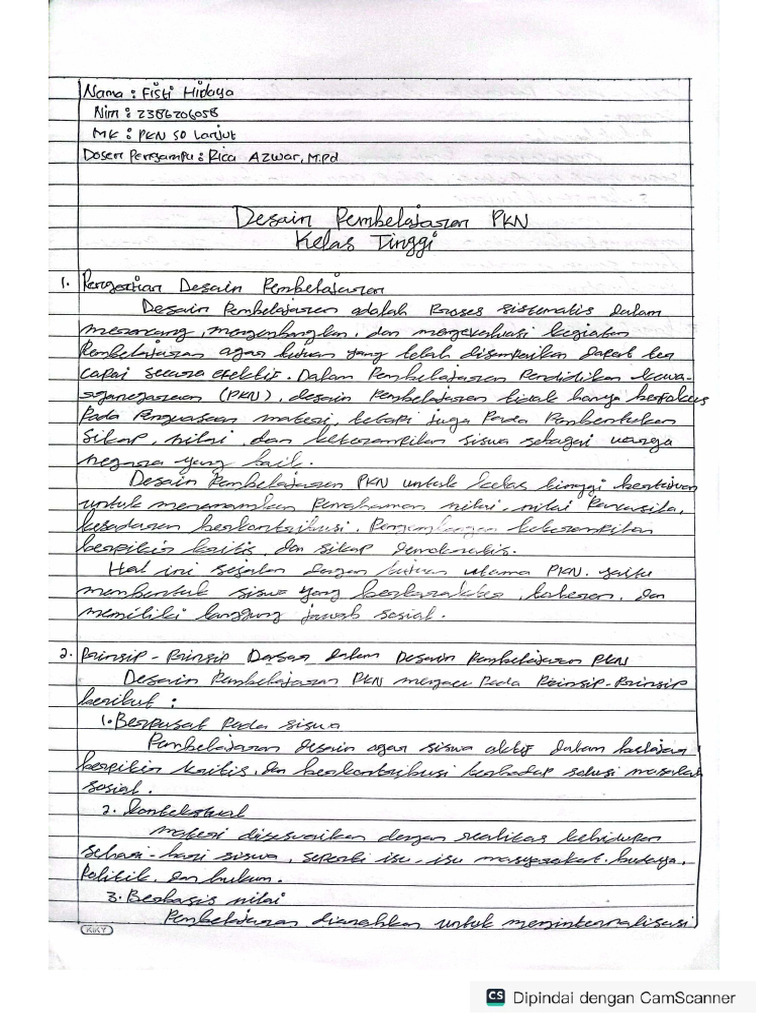 Nama : Fisti Hidaya
Nim : 2386206058
MK : PKN SD Lanjut
Dosen Pengampu : Rica Azwar, M.Pd
Desain Pembelajaran PKN
Kelas Tinggi
1. Pengertian Desain Pembelajaran
Desain Pembelajaran adalah Proses sistematis dalam
merancang, mengembangkan, dan mengevaluasi kegiatan
Pembelajaran agar tujuan yang telah disampaikan dapat ter
capai secara efektif. Dalam Pembelajaran Pendidikan kewa-
rganegaraan (PKN), desain Pembelajaran tidak hanya berfokus
Pada Penguasaan materi, tetapi juga Pada Pembentukan
Sikap, nilai, dan keterampilan siswa sebagai warga
negara yang baik.
Desain Pembelajaran PKN untuk kelas tinggi bertujuan
untuk menanamkan Pemahaman nilai-nilai Pancasila,
kesadaran berkontribusi, Pengembangan keterampilan
berpikir kritis, dan sikap demokratis.
Hal ini sejalan dengan tujuan utama PKN. yaitu
membentuk siswa yang berkarakter, toleran, dan
memiliki tanggung jawab sosial.
2. Prinsip-Prinsip Dasar dalam Desain Pembelajaran PKN
Desain Pembelajaran PKN mengacu Pada Prinsip-Prinsip
berikut :
1. Berpusat Pada siswa
Pembelajaran desain agar siswa aktif dalam belajar
berpikir kritis, dan berkontribusi terhadap solusi masalah
sosial.
2. Kontekstual
materi disesuaikan dengan realitas kehidupan
sehari-hari siswa, seperti isu-isu masyarakat, budaya,
Politik, dan hukum.
3. Berbasis nilai
Pembelajaran diarahkan untuk menginternalisasi
KIKY
CS Dipindai dengan CamScanner